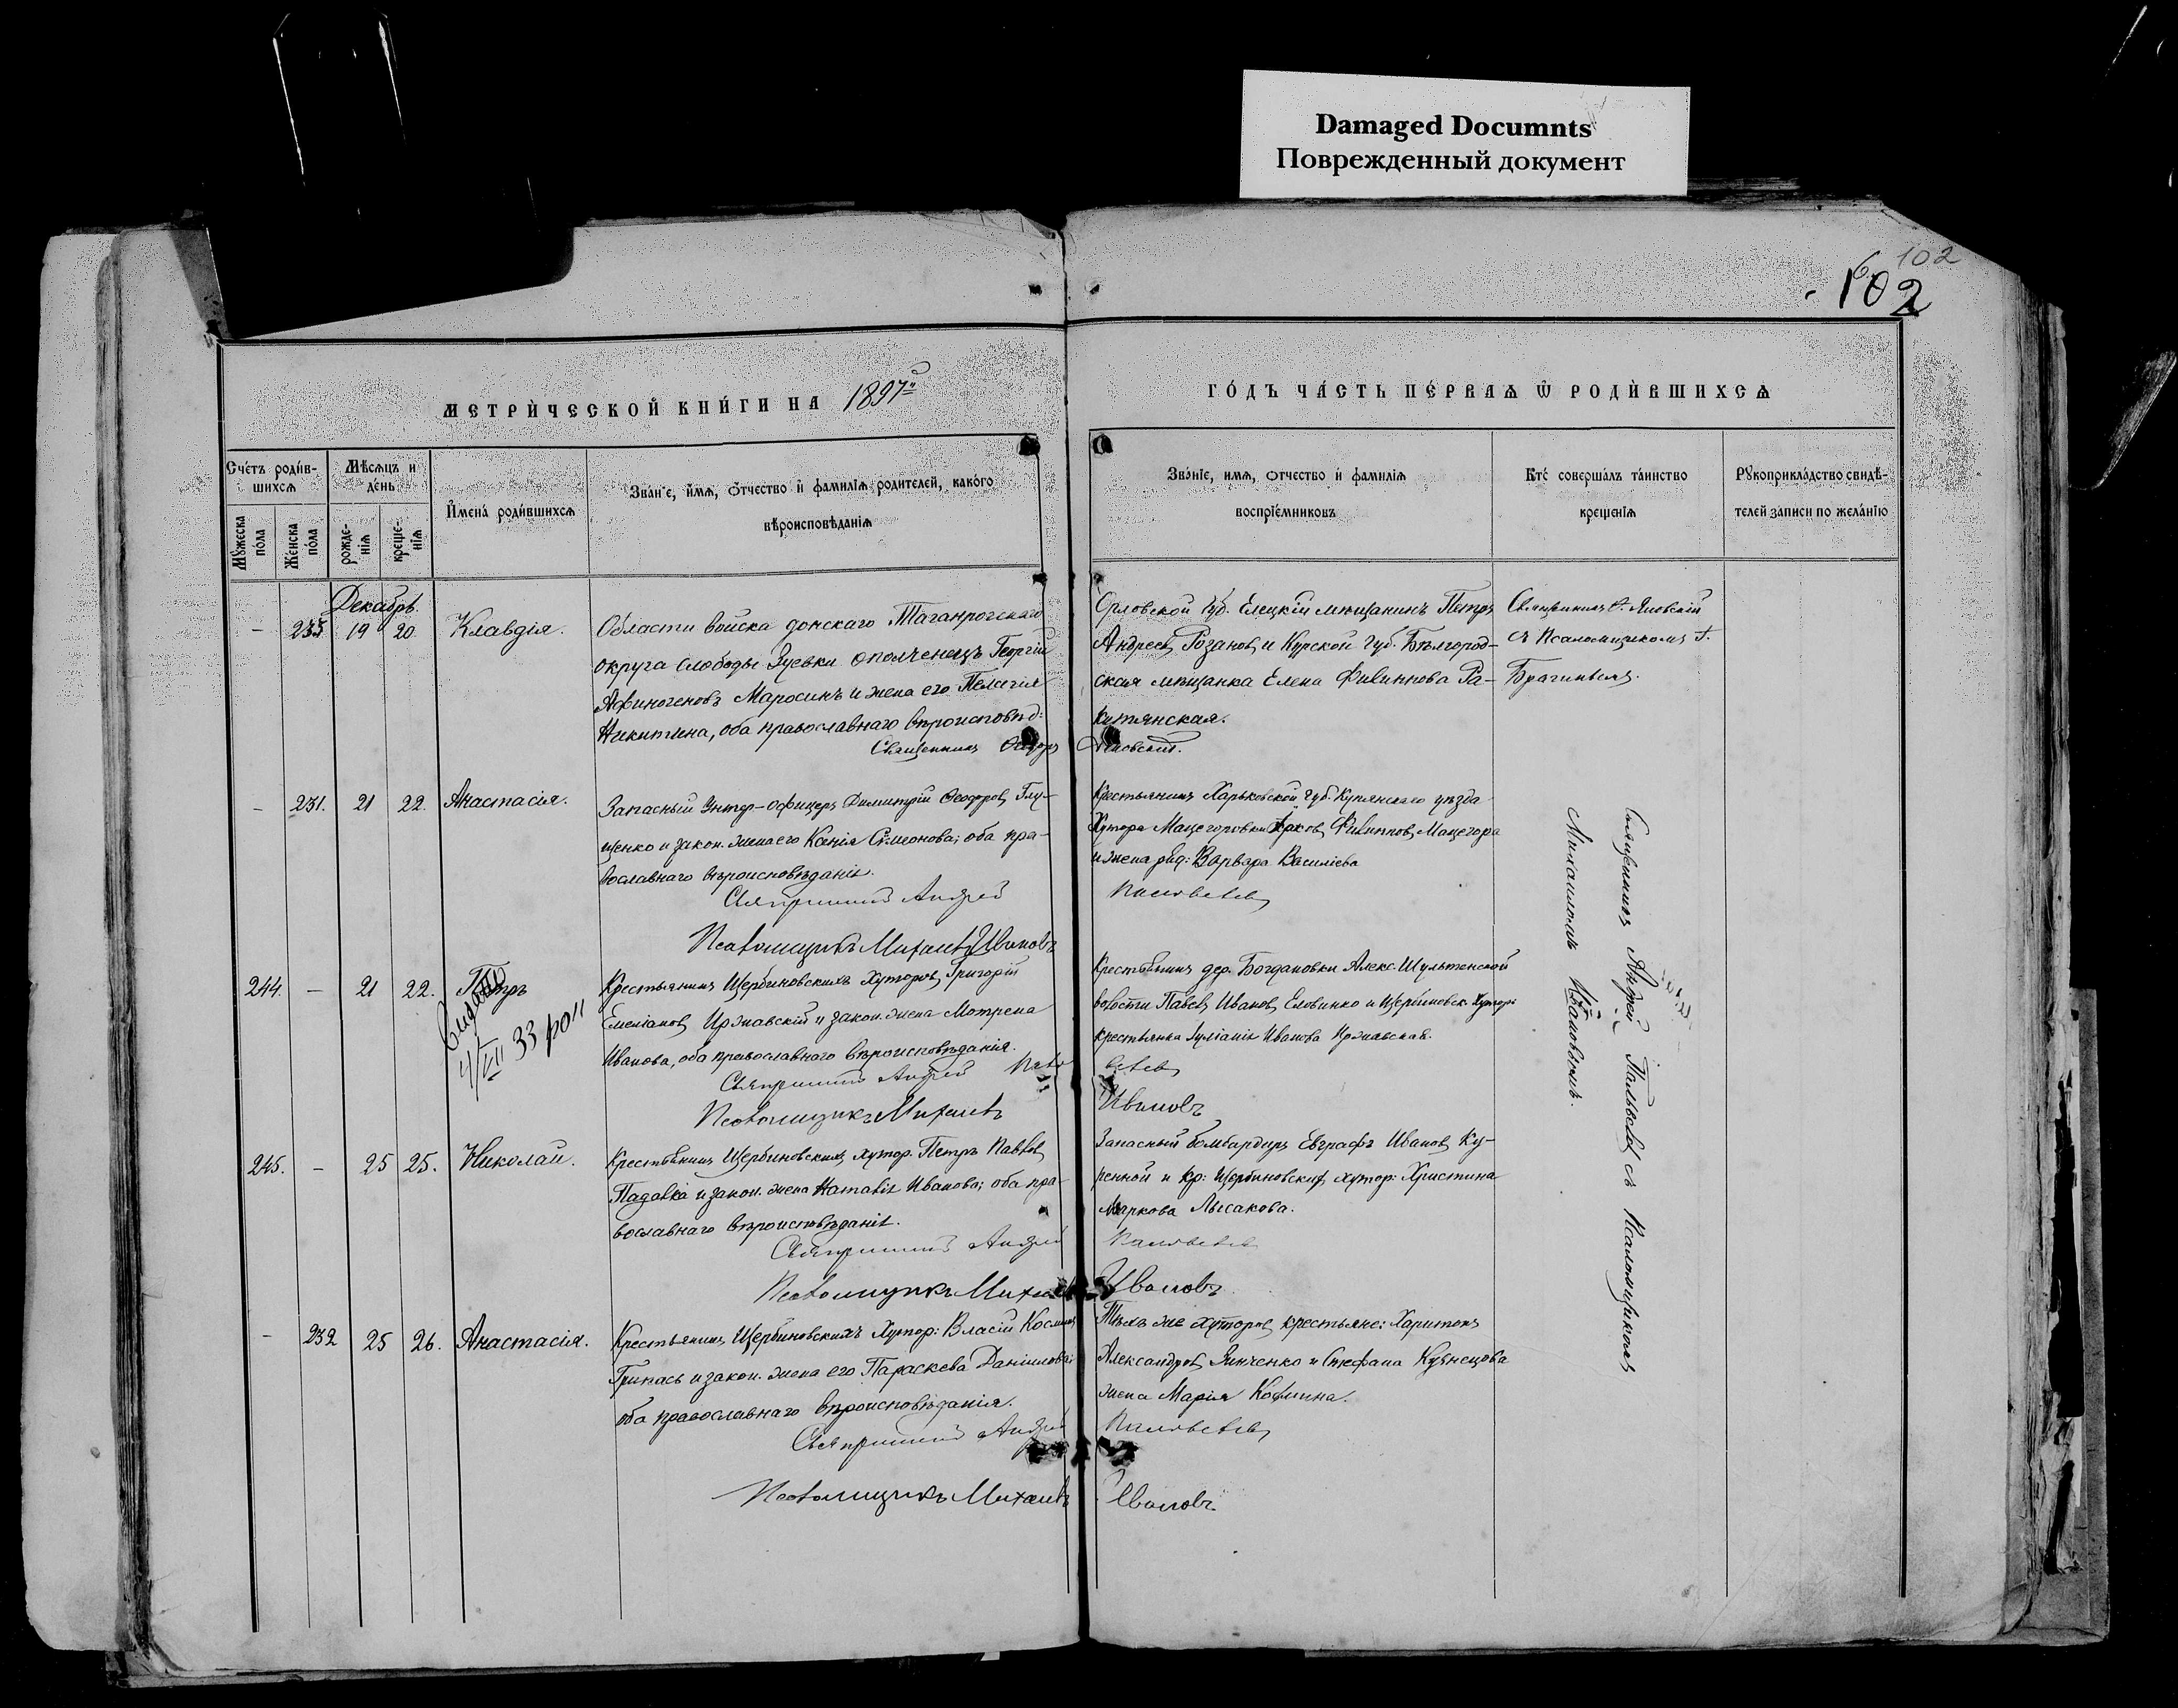 Damaged Documnts
Поврежденный документ
102
102
МЕТРИ́ЧЕСКОЙ КНИ́ГИ НА 1897й
ГО́ДЪ ЧА́СТЬ ПЕ́РВАѦ Ѡ҆ РОДИ́ВШИХСѦ
Счéтъ роди́в-
шихсѧ
Мꙋжеска пóла
Же́нска пóла
Мѣ́сѧцъ и де́нь
рожде-нїѧ
креще-нїѧ
И҆мена́ роди́вшихсѧ
Зва́нїе, и҆́мѧ, ѻ҆́тчество и҆ фами́лїѧ роди́телей, како́гѡ
вѣроисповѣ́данїѧ
Зва́нїе, и҆мѧ, ѻтчество и҆ фамилїѧ
воспрїе́мниковъ
Кто́ соверша́лъ та́инство
креще́нїѧ
Рꙋкоприкла́дство свидѣ́-
телей за́писи по жела́нїю
Декабрь.
– 235 19 20 Клавдія.
Области войска донскаго Таганрогскаго
округа слободы Зуевки ополченецъ Георгій
Афиногеновъ Маросинъ и жена его Пелагія
Никитина, оба православнаго вѣроисповѣд:
Священникъ Ѳеодоръ Яновскій.
Орловской губ. Елецкій мѣщанинъ Петръ
Андреевъ Розановъ и Курской губ. Бѣлгород-
ская мѣщанка Елена Филиппова Ра-
китянская.
Священникъ Ѳ. Яновскій
съ Псаломщикомъ І.
Брагинымъ.
– 231. 21 22. Анастасія.
Запасный Унтер-офицеръ Димитрій Ѳеодоровъ Глу-
щенко и закон. жена его Ксенія Сѵмеонова; оба пра-
вославнаго вѣроисповѣданія.
Священникъ Андрей
Псаломщикъ Михаилъ Ивановъ
Крестьянинъ Харьковской губ. Купянскаго уѣзда
Хутора Мацегоровки Яковъ Филипповъ Мацегора
и жена ряд: Варвара Василіева
244. – 21 22. Петръ
4/VII 33 р
Крестьянинъ Щербиновскихъ Хуторовъ Григорій
Емеліановъ Иржавскій и закон. жена Мотрена
Иванова, оба православнаго вѣроисповѣданія.
Священникъ Андрей
Псаломщикъ Михаилъ Ивановъ
Крестьянинъ дер. Богдановки Алекс. Шультенской
волости Павелъ Ивановъ Еловинко и Щербиновск. Хутор:
крестьянка Іуліанія Иванова Иржавская.
245. – 25 25. Николай.
Крестьянинъ Щербиновскихъ хутор. Петръ Павловъ
Падалка и закон. жена Наталія Иванова; оба пра-
вославнаго вѣроисповѣданія.
Священникъ Андрей
Псаломщикъ Михаилъ Ивановъ
Запасный бомбардиръ Евграфъ Ивановъ Ку-
ренной и кр: Щербиновскихъ хутор: Христина
Маркова Лысакова.
– 232 25 26. Анастасія.
Крестьянинъ Щербиновскихъ Хутор: Власій Косминъ
Грикась и закон. жена его Параскева Даніилова;
оба православнаго вѣроисповѣданія.
Священникъ Андрей
Псаломщикъ Михаилъ Ивановъ.
Тѣхъ же хуторовъ крестьяне: Харитонъ
Александровъ Зинченко и Стефана Кузнецова
жена Марія Космина.
Священникъ Андрей съ Псаломщикомъ
Михаиломъ Ивановымъ.